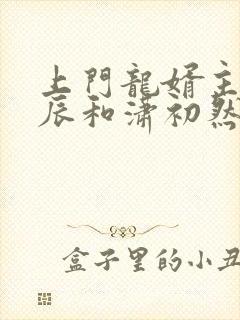 上門龍婿主
辰和瀟初然
盒子里的小丑